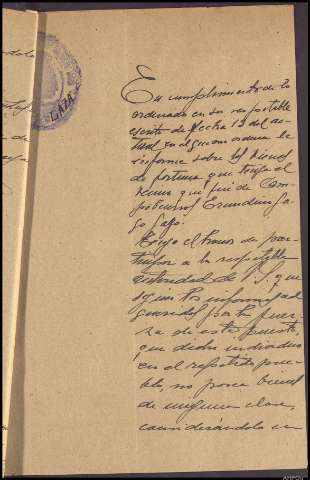 LAZA
En cumplimiento de lo
ordenado en su respetable
escrito de fecha 12 del ac-
tual en el que me ordena le
informe sobre los bienes
de fortuna que tenga el
vecino que fué de Cam-
pobecerros Erundino Ga-
go Gago.
Tengo el honor de par-
ticipar a la respetable
autoridad de V.S. que
según los informes ad-
quiridos por la fuer-
za de este puesto,
que dicho individuo
en el repetido pue-
blo, no posee bienes
de ninguna clase,
considerándolo in